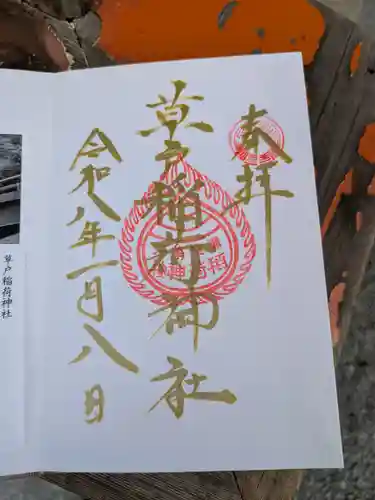 奉拝
草戸稲荷神社
令和八年一月八日
草戸稲荷神社